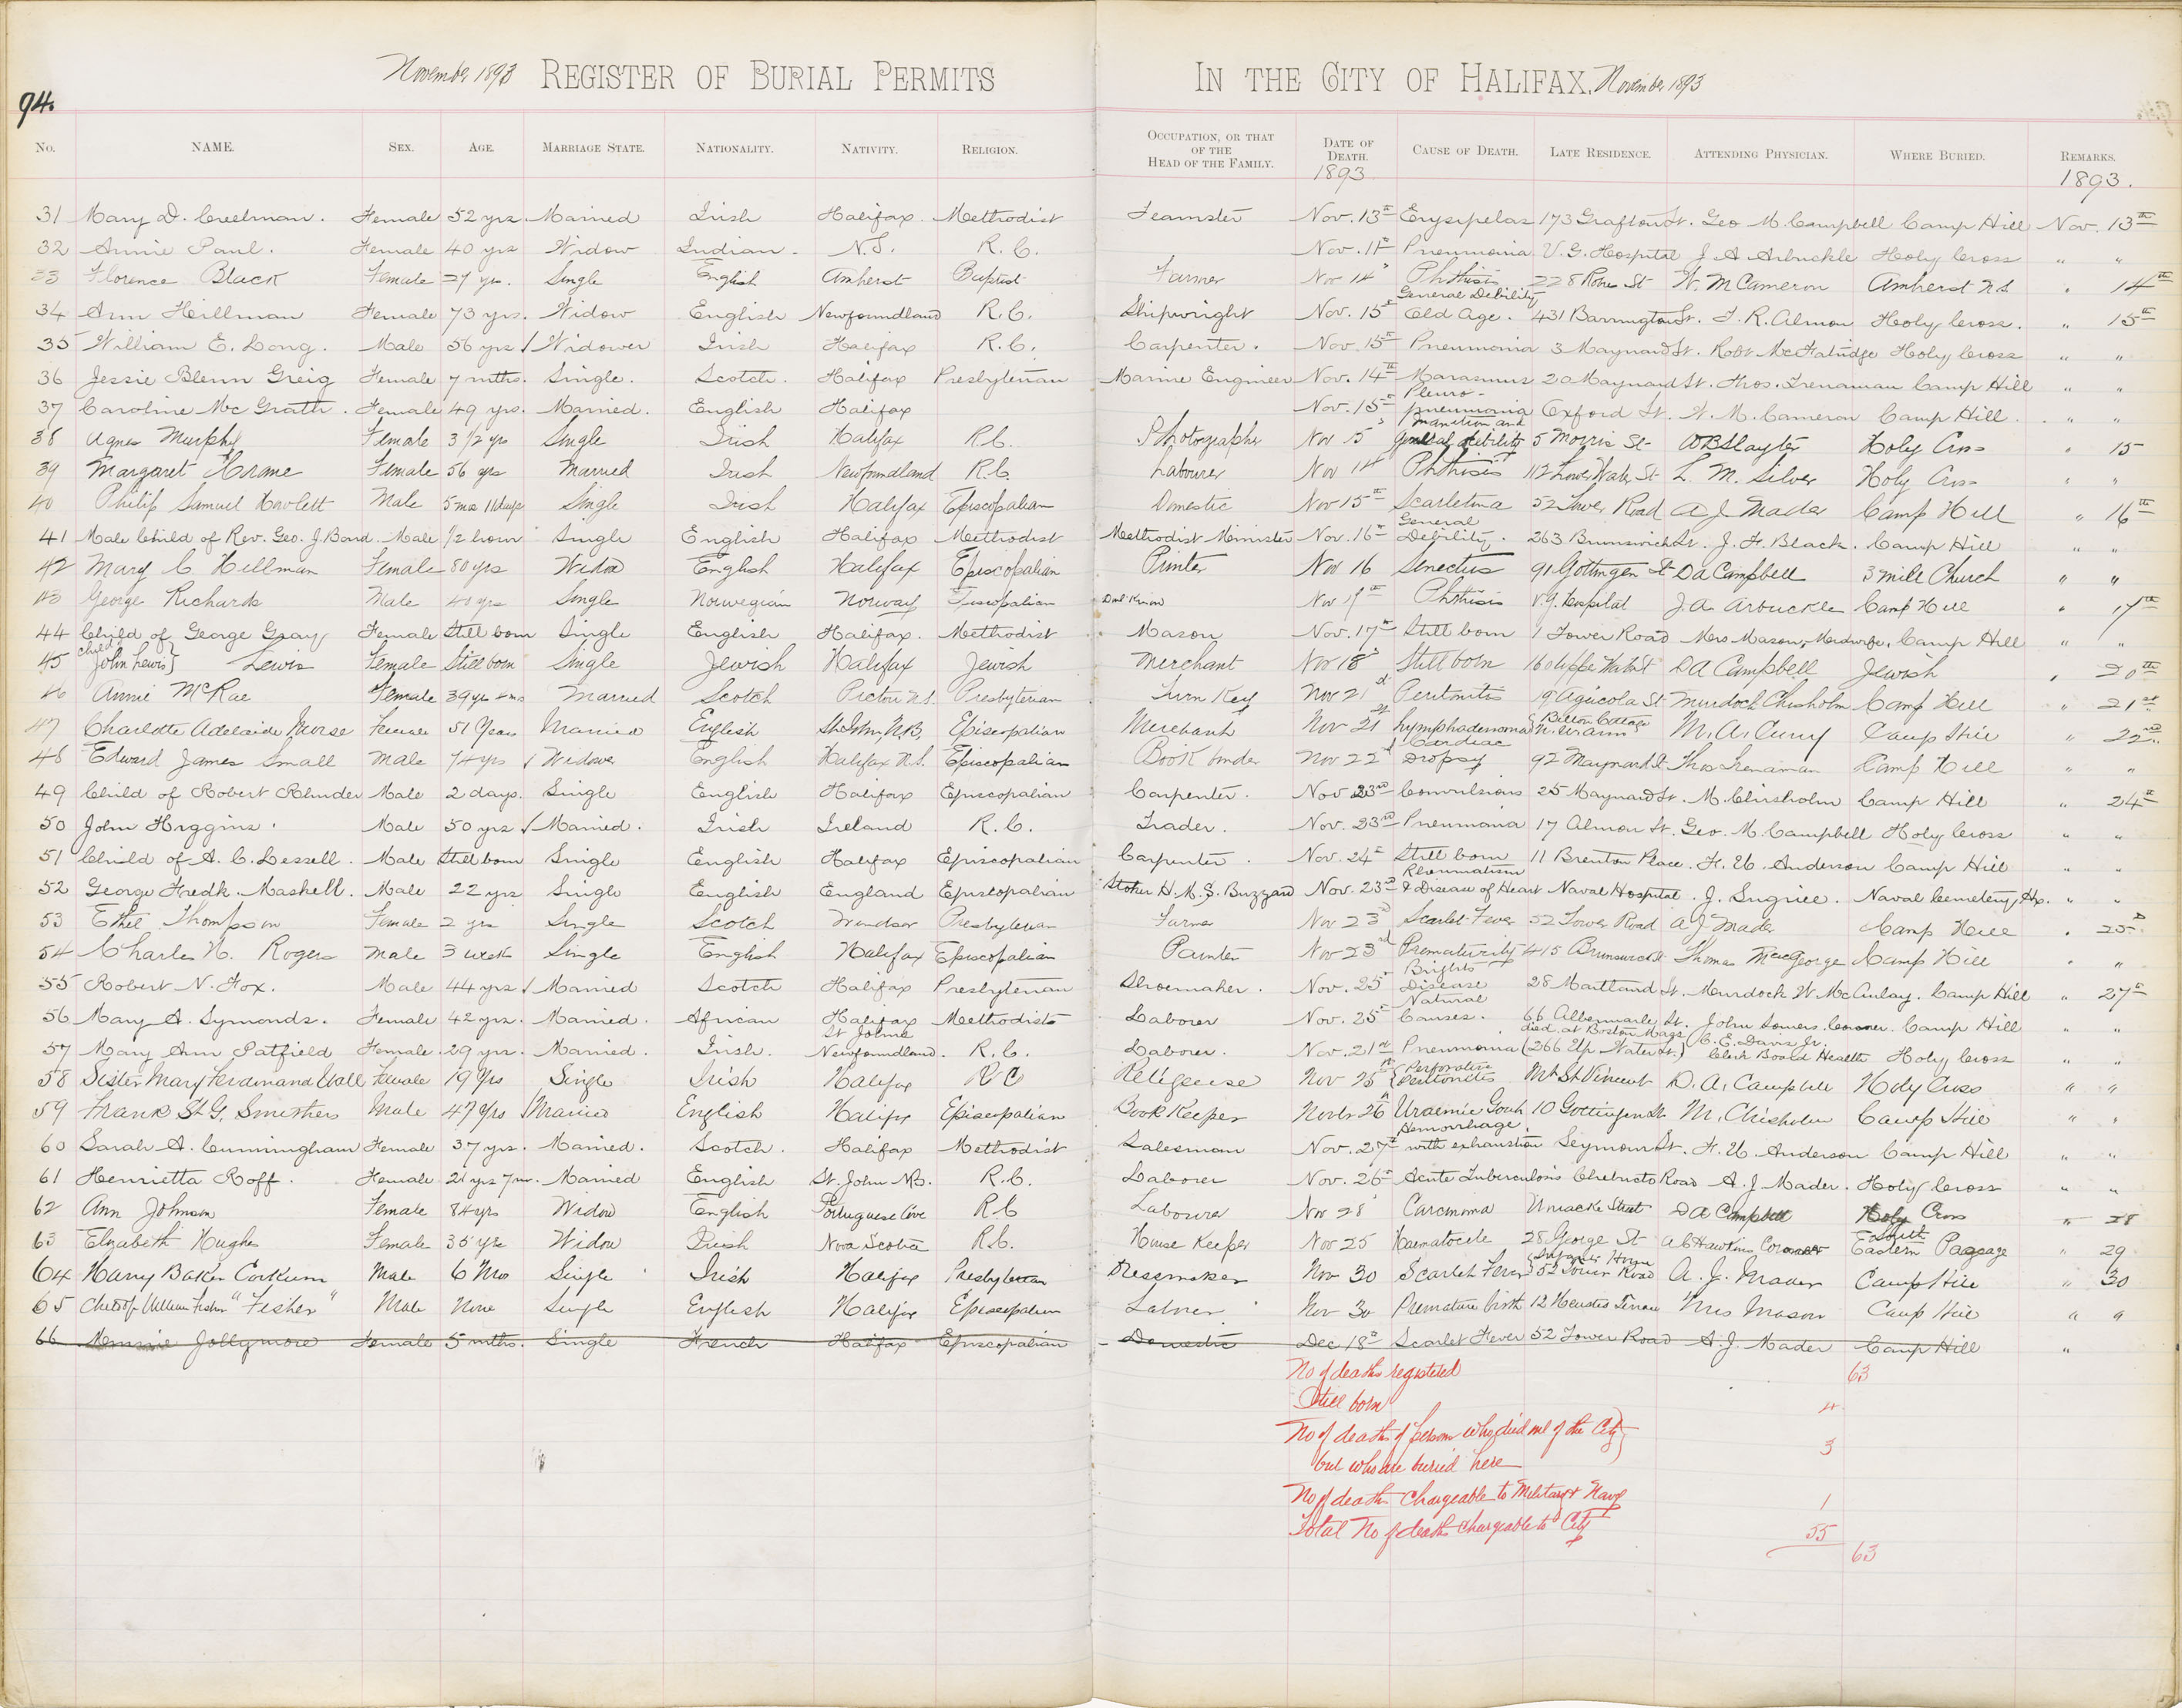 November 1893 REGISTER OF BURIAL PERMITS IN THE CITY OF HALIFAX. November 1893
94.
No. NAME. SEX. AGE. MARRIAGE STATE. NATIONALITY. NATIVITY. RELIGION. OCCUPATION, OR THAT OF THE HEAD OF THE FAMILY. DATE OF DEATH. CAUSE OF DEATH. LATE RESIDENCE. ATTENDING PHYSICIAN. WHERE BURIED. REMARKS.
1893 1893.
31 Mary D. Creelman. Female 52 yrs. Married Irish Halifax. Methodist Teamster Nov. 13th Erysipelas 173 Grafton St. Geo M. Campbell Camp Hill Nov. 13th
32 Annie Paul. Female 40 yrs Widow Indian. N.S. R.C. Nov. 11th Pneumonia V.G. Hospital J A Arbuckle Holy Cross " "
33 Florence Black Female 27 yrs. Single English Amherst Baptist Farmer Nov 14 Phthisis 228 Robie St W. M Cameron Amherst N.S. " 14th
34 Ann Hillman Female 73 yrs. Widow English Newfoundland R.C. Shipwright Nov. 15th General Debility Old Age. 431 Barrington St. T. R. Almon Holy Cross. " 15th
35 William E. Long. Male 56 yrs / Widower Irish Halifax R.C. Carpenter. Nov. 15th Pneumonia 3 Maynard St. Robt McFatridge Holy Cross " "
36 Jessie Blenn Greig Female 7 mths. Single. Scotch. Halifax Presbyterian Marine Engineer Nov. 14th Marasmus 20 Maynard St. Thos. Trenaman Camp Hill " "
37 Caroline Mc Grath. Female 49 yrs. Married. English Halifax Nov. 15th Pleuro-pneumonia Oxford St. W. M. Cameron Camp Hill. " "
38 Agnes Murphy Female 3 1/2 yrs Single Irish Halifax R.C. Photographer Nov 15 Inanition and general debility 5 Morris St W B Slayter Holy Cross " 15
39 Margaret Krane Female 56 yrs Married Irish Newfoundland R.C. Labourer Nov 14 Phthisis 112 Lower Water St L. M. Silver Holy Cross " "
40 Philip Samuel Howlett Male 5 mos 11 days Single Irish Halifax Episcopalian Domestic Nov 15th Scarletina 52 Tower Road A J Mader Camp Hill " 16th
41 Male Child of Rev. Geo. J. Bond. Male 1/2 hour Single English Halifax Methodist Methodist Minister Nov. 16th General Debility. 263 Brunswick St. J. F. Black. Camp Hill " "
42 Mary C Hillman Female 80 yrs Widow English Halifax Episcopalian Printer Nov 16 Senectus 91 Gottingen St D A Campbell 3 mile Church " "
43 George Richards Male 40 yrs Single Norwegian Norway Episcopalian Dont Know Nov 17th Phthisis V.G. Hospital J. A. Arbuckle Camp Hill " 17th
44 Child of George Gray Female Still born Single English Halifax. Methodist Mason Nov. 17th Still born 1 Tower Road Mrs Mason, Midwife. Camp Hill " "
45 Child John Lewis} Lewis Female Still born Single Jewish Halifax Jewish Merchant Nov 18 Still born 160 Upper Water St D A Campbell Jewish " 20th
46 Annie McRae Female 39 yrs Married Scotch Pictou N.S. Presbyterian Turn Key Nov 21st Peritonitis 19 Agricola St Murdoch Chisholm Camp Hill " 21st
47 Charlotte Adelaide Morse Female 51 Years Married English St John, N.B. Episcopalian Merchant Nov 21st Lymphadenoma N. W. Arm M. A. Curry Camp Hill " 22nd
48 Edward James Small Male 74 yrs / Widower English Halifax N.S. Episcopalian Book binder Nov 22d Cardiac Dropsy 92 Maynard St Thos Trenaman Camp Hill " "
49 Child of Robert Rhuder Male 2 days. Single English Halifax Episcopalian Carpenter. Nov 23rd Convulsions 25 Maynard St. M. Chisholm Camp Hill " 24th
50 John Higgins. Male 50 yrs / Married. Irish Ireland R.C. Trader. Nov. 23rd Pneumonia 17 Almon St. Geo. M. Campbell Holy Cross " "
51 Child of A. C. Lessell. Male Still born Single English Halifax Episcopalian Carpenter. Nov. 24th Still born 11 Brenton Place. F. U. Anderson Camp Hill " "
52 George Fredk. Maskell. Male 22 yrs Single English England Episcopalian Stoker H.M.S. Buzzard Nov. 23rd Rheumatism & Disease of Heart Naval Hospital. J. Sugrue. Naval Cemetery, Hx. " "
53 Ethel Thompson Female 2 yrs Single Scotch Windsor Presbyterian Farmer Nov 23d Scarlet Fever 52 Tower Road A J Mader Camp Hill " 25
54 Charles H. Rogers Male 3 weeks Single English Halifax Episcopalian Painter Nov 23d Prematurity 415 Brunswick St Thomas MacGeorge Camp Hill " "
55 Robert N. Fox. Male 44 yrs / Married Scotch Halifax Presbyterian Shoemaker. Nov. 25th Brights Disease 28 Maitland St. Murdock W McAulay. Camp Hill " 27th
56 Mary A. Symonds. Female 42 yrs. Married. African Halifax Methodists Laborer Nov. 25th Natural Causes. 66 Albermarle St. John Somers. Coroner. Camp Hill " "
57 Mary Ann Patfield Female. 29 yrs. Married. Irish. St Johns Newfoundland. R.C. Laborer. Nov. 21st Pneumonia died at Boston Mass (266 Up Water St.) C. E. Davis Jr. Clerk Board Health Holy Cross " "
58 Sister Mary Ferdinand Wall Female 19 Yrs Single Irish Halifax R C Religeuse Nov 25th Perforative peritonitis Mt St Vincent D. A. Campbell Holy Cross " "
59 Frank St G. Smithers Male 47 Yrs / Married English Halifax Episcopalian Book Keeper Novbr 26th Uraemic Gouh 10 Gottingen St M. Chisholm Camp Hill " "
60 Sarah A. Cunningham Female 37 yrs. Married. Scotch. Halifax Methodist Salesman Nov. 27th Hemorrhage. with exhaustion Seymour St. F. U. Anderson Camp Hill " "
61 Henrietta Roff. Female 21 yrs 7 m. Married English St. John N.B. R.C. Laborer Nov. 26th Acute Tuberculosis Chebucto Road A. J. Mader. Holy Cross " "
62 Ann Johnson Female 84 yrs Widow English Portuguese Cove R C Labourer Nov 28 Carcinoma Uniacke Street D A Campbell Holy Cross " 28
63 Elizabeth Hughes Female 35 yrs Widow Irish Nova Scotia R.C. House Keeper Nov 25 Haematocele 28 George St A C Hawkins Coroner Eastern Passage " 29
64 Harry Baker Corkum Male 6 Mos Single Irish Halifax Presbyterian Dressmaker Nov 30 Scarlet Fever Infants Home 52 Tower Road A. J. Mader Camp Hill " 30
65 Child of William Fisher "Fisher" Male None Single English Halifax Episcopalian Laborer Nov 30 Premature birth 12 Terrace Mrs Mason Camp Hill " "
66 Jollymore Female 5 mths. Single French Halifax Episcopalian Domestic Dec 18th Scarlet Fever 52 Tower Road A. J. Mader Camp Hill "
No of deaths registered 63
Still born 4
No of deaths of persons who died out of the City
but who are buried here 3
No of deaths Chargeable to Military & Navy 1
Total No of deaths chargeable to City 55
63